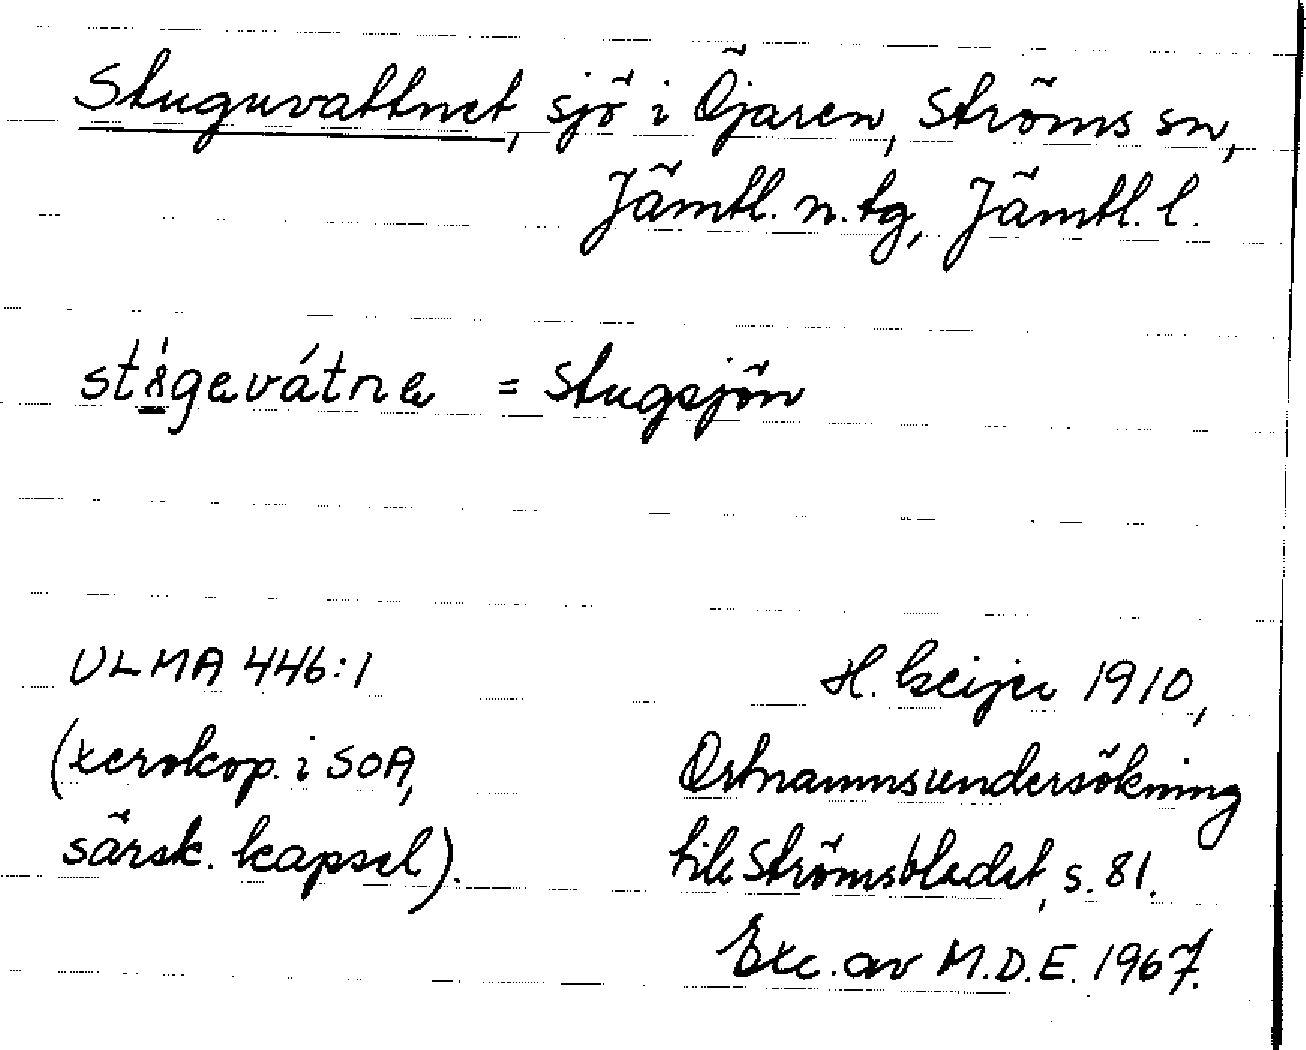 Stuguvattnet, sjö i Öjaren, Ströms sn,
Jämtl. n. tg, Jämtl. l.
= Stugsjön
ULMA 446:1
(xerokop. i SOA,
särsk. kapsel).
H. Geijer 1910,
Ortnamnsundersökning
till Strömsbladet, s. 81.
Exc. av M.D.E. 1967.